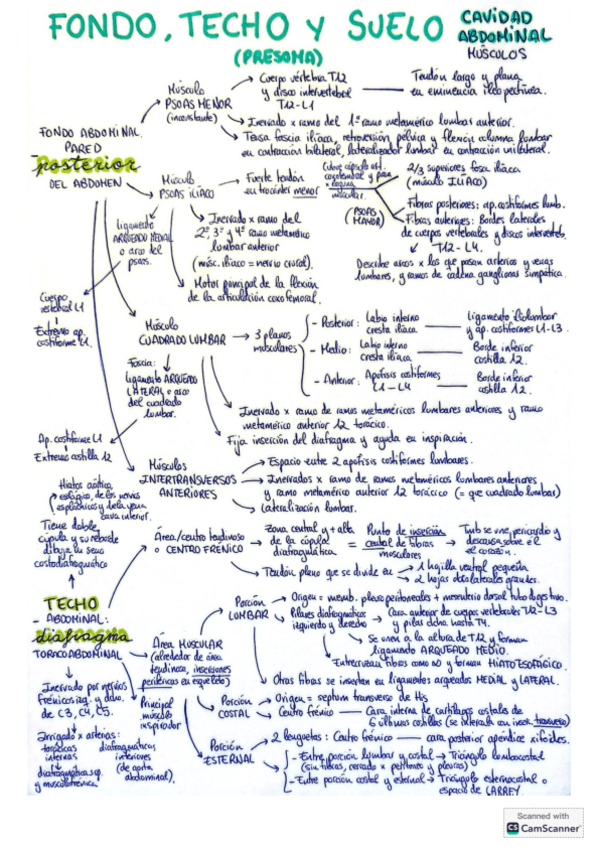 FONDO, TECHO y SUELO
CAVIDAD
ABDOMINAL
MÚSCULOS
(PRESOMA)
FONDO ABDOMINAL.
PARED
posterior
DEL ABDOMEN
Músculo
PSOAS MENOR
(inconstante)
Cuerpo vértebra T12
y disco intervertebral
T12-L1
Tendón largo y plano
en eminencia ileopectínea.
Inervado x ramo del 1º ramo metamérico lumbar anterior.
Tensa fascia ilíaca, retroversión pélvica y flexión columna lumbar
en contracción bilateral, lateralizador lumbar en contracción unilateral.
Músculo
PSOAS ILÍACO
Fuerte tendón
en trocánter menor
muscular.
2/3 superiores fosa ilíaca
(músculo ILÍACO)
(PSOAS
MAYOR)
Fibras posteriores: ap. costiformes lumb.
Fibras anteriores: Bordes laterales
de cuerpos vertebrales y discos interverteb.
T12-L4.
Describe arcos x los que pasan arterias y venas
lumbares, y ramos de cadena ganglionar simpática.
Inervado x ramo del
2º, 3º y 4º ramo metamérico
lumbar anterior
(músc. ilíaco = nervio crural).
Motor principal de la flexión
de la articulación coxofemoral.
Ligamento
ARQUEADO MEDIAL
o arco del
psoas.
Cuerpo
vertebral L1
Extremo ap.
costiforme L1.
Músculo
CUADRADO LUMBAR
3 planos
musculares
- Posterior: Labio interno
cresta ilíaca
Ligamento iliolumbar
y ap. costiformes L1-L3.
- Medio: Labio interno
cresta ilíaca
Borde inferior
costilla 12.
- Anterior: Apófisis costiformes
L1-L4
Borde inferior
costilla 12.
Fascia:
Ligamento ARQUEADO
LATERAL o arco
del cuadrado
lumbar.
Inervado x ramo de ramos metaméricos lumbares anteriores y ramo
metamérico anterior 12 torácico.
Fija inserción del diafragma y ayuda en inspiración.
Ap. costiforme L1
Extremo costilla 12
Músculos
INTERTRANSVERSOS
ANTERIORES
Espacio entre 2 apófisis costiformes lumbares.
Inervados x ramo de ramos metaméricos lumbares anteriores
y ramo metamérico anterior 12 torácico (= que cuadrado lumbar)
Lateralización lumbar.
Hiatos aórtico,
esofágico, de los nervios
esplácnicos y de la vena
cava inferior.
Tiene doble
cúpula y su reborde
dibuja un seno
costodiafragmático
Área/centro tendinoso
o CENTRO FRÉNICO
Zona central y + alta
de la cúpula
diafragmática
= Punto de inserción
central de fibras
musculares
Tmb se une pericardio y
descansa sobre él
el corazón.
Tendón plano que se divide en
1 hojilla ventral pequeña
2 hojas dorsolaterales grandes.
TECHO
- ABDOMINAL:
diafragma
TORACOABDOMINAL
Inervado por nervios
frénicos izq. y dcho.
de C3, C4, C5.
Irrigado x arterias:
torácicas
internas
diafragmáticas
inferiores
(de aorta
abdominal).
diafragmática sup.
y musculofrénica
Área MUSCULAR
(alrededor de área
tendinosa, inserciones
periféricas en esqueleto)
Principal
músculo
inspirador
Porción
LUMBAR
Origen = memb. pleuroperitoneales + mesenterio dorsal tubo digestivo.
Pilares diafragmáticos
izquierdo y derecho
Cara anterior de cuerpos vertebrales T12-L3
y pilar dcho. hasta T4.
Se unen a la altura de T12 y forman
ligamento ARQUEADO MEDIO.
Entrecruzan fibras como ∞ y forman HIATO ESOFÁGICO.
Otras fibras se insertan en ligamentos arqueados MEDIAL y LATERAL.
Porción
COSTAL
Origen = septum transverso de His
Centro frénico — Cara interna de cartílagos costales de
6 últimas costillas (se interdigita con músc. transverso)
Porción
ESTERNAL
2 lengüetas: Centro frénico — cara posterior apéndice xifoides.
- Entre porción lumbar y costal → Triángulo lumbocostal
(sin fibras, cerrado x peritoneo y pleuras)
- Entre porción costal y esternal → Triángulo esternocostal o
espacio de LARREY
Scanned with
CS CamScanner